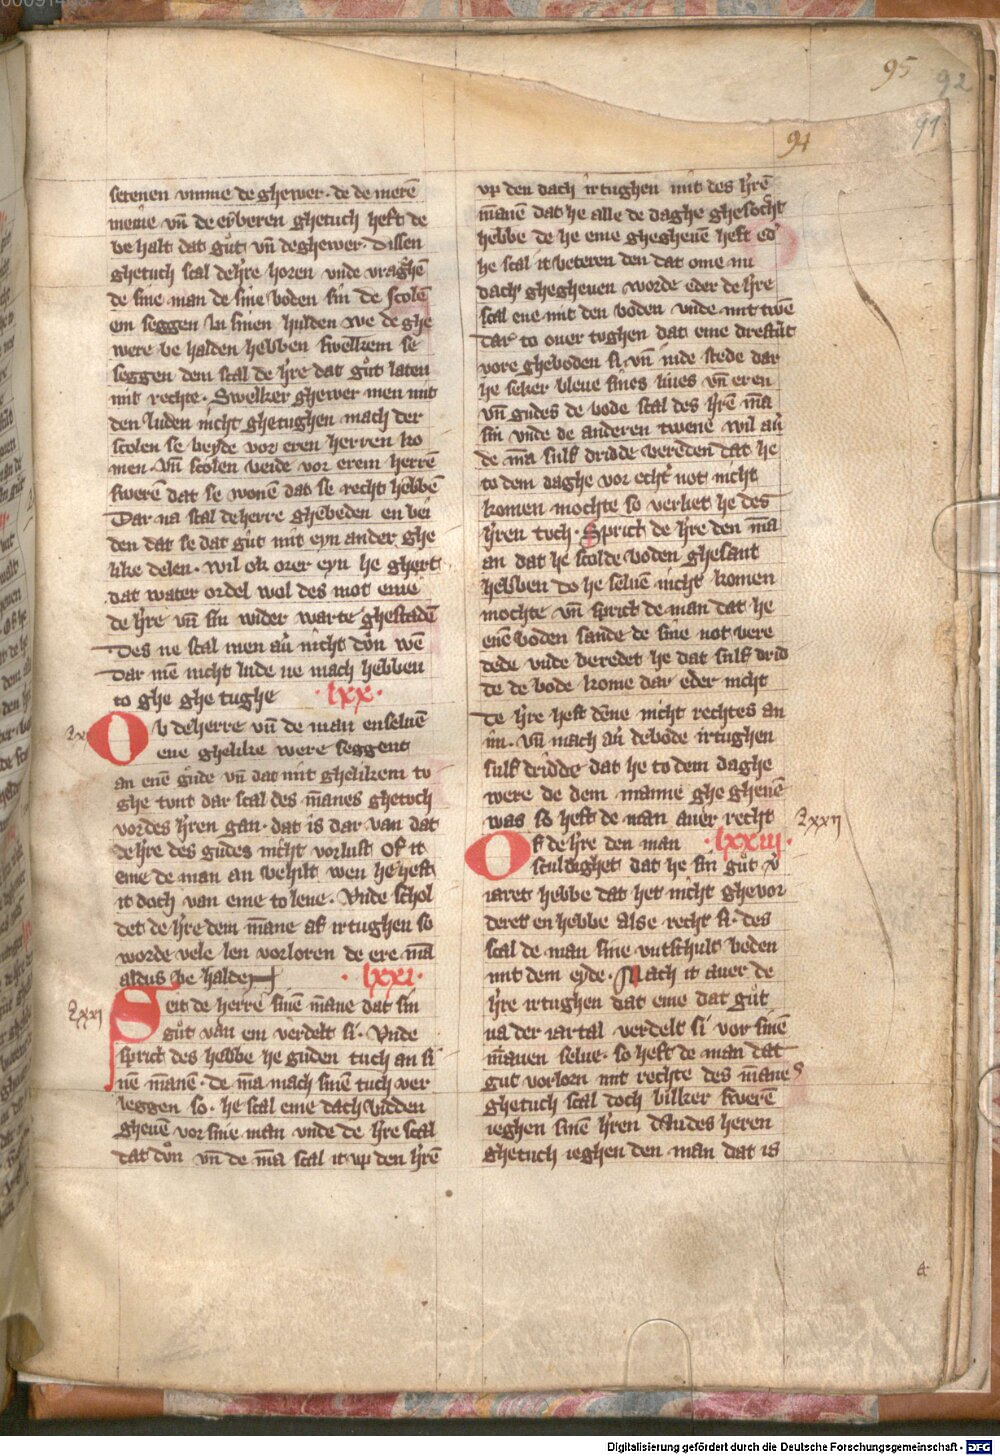 95
92
91
94
setenen vmme de ghewer · de de merē
meine vn̄ de erberen ghetuch heft de
be halt dat gůt vn̄ deghewer · Dissen
ghetuch scal dehr̄e horen vnde vraghē
de sine man de sine boden sin de scolē
em seggen in sinen hulden we de ghe
were be halden hebben swelkem se
seggen dem scal de hr̄e dat gůt laten
mit rechte · Swelker ghewer men mit
den luden nicht ghetughen mach der
scolen se beyde vor eren herren ko
men · vn̄ scolen beide vor erem herrē
swerē dat se wonē dat se recht hebbē
Dar na scal deherre ghebeden en bei
den dat se dat gůt mit eyn ander ghe
like delen · wil ok orer eyn he ghert
dat water ordel wol des mot eme
de hr̄e vn̄ sin wider warte ghestadē
Des ne scal men au̅ nicht dŏn wē
Dar mē nicht lude ne mach hebben
to ghe ghe tughe · lxx ·
Ob deherre vn̄ de man enseluē
ene ghelike were seggent
an enē gůde vn̄ dat mit ghelikem to
ghe tunt dar scal des m̄anes ghetuch
vordes hr̄en gan · dat is dar van dat
de hr̄e des gudes nicht vorlust Of it
eme de man an behilt wen he heft
it doch van eme to lene · Vnde schol
det de hr̄e dem m̄ane af irtughen so
worde vele len vorloren de ere ma̅
aldus be halden · lxxi ·
Lxxi
Seit de herre sinē m̄ane dat sin
gůt van em verdelt si · Vnde
sprict des hebbe he guden tuch an si
nē m̄anē · de ma̅ mach sinē tuch ver
leggen so · he scal eme dach bidden
gheuē vor sine man vnde de hr̄e scal
dat dŏn vn̄ de ma̅ scal it vp den hr̄ē
vp den dach irtughen mit des hr̄ē
m̄anē dat he alle de daghe ghesocht
hebbe de he eme ghegheuē heft ed'
he scal it beteren den dat ome nu
dach ghegheuen worde eder de hr̄e
scal ene mit den boden vnde mit twē
dar to ouer tughen dat eme drestūt
vore gheboden si vn̄ inde stede dar
he seker bleue sines liues vn̄ eren
vn̄ gudes de bode scal des hr̄ē ma̅
sin vnde de anderen twene wil au̅
de ma̅ sulf dridde bereden dat he
to dem daghe vor echt not nicht
komen mochte so verliet he des
hr̄en tuch · Sprict de hr̄e den ma̅
an dat he scolde boden ghesant
hebben do he seluē nicht komen
mochte vn̄ sprict de man dat he
enē boden sande de sine not bere
dede vnde beredet he dat sulf drid
de de bode kome dar eder nicht
De hr̄e heft dēne nicht rechtes an
im · vn̄ mach au̅ debode irtughen
sulf dridde dat he to dem daghe
were de dem manne ghe gheuē
was so heft de man auer recht
Lxxii
Of de hr̄e den man · lxxiii ·
sculdighet dat he sin gůt v'
iaret hebbe dat het nicht ghevor
deret en hebbe alse recht si · des
scal de man sine vntschult beden
mit dem eyde · Mach it auer de
hr̄e irtughen dat eme dat gůt
na der iartal verdelt si vor sinē
m̄anen selue · so heft de man dat
gut vorlorn mit rechte des m̄anes
ghetuch scal doch billker swerē
ieghen sinē hr̄en dān des heren
ghetuch ieghen den man dat is
Digitalisierung gefördert durch die Deutsche Forschungsgemeinschaft - DFG